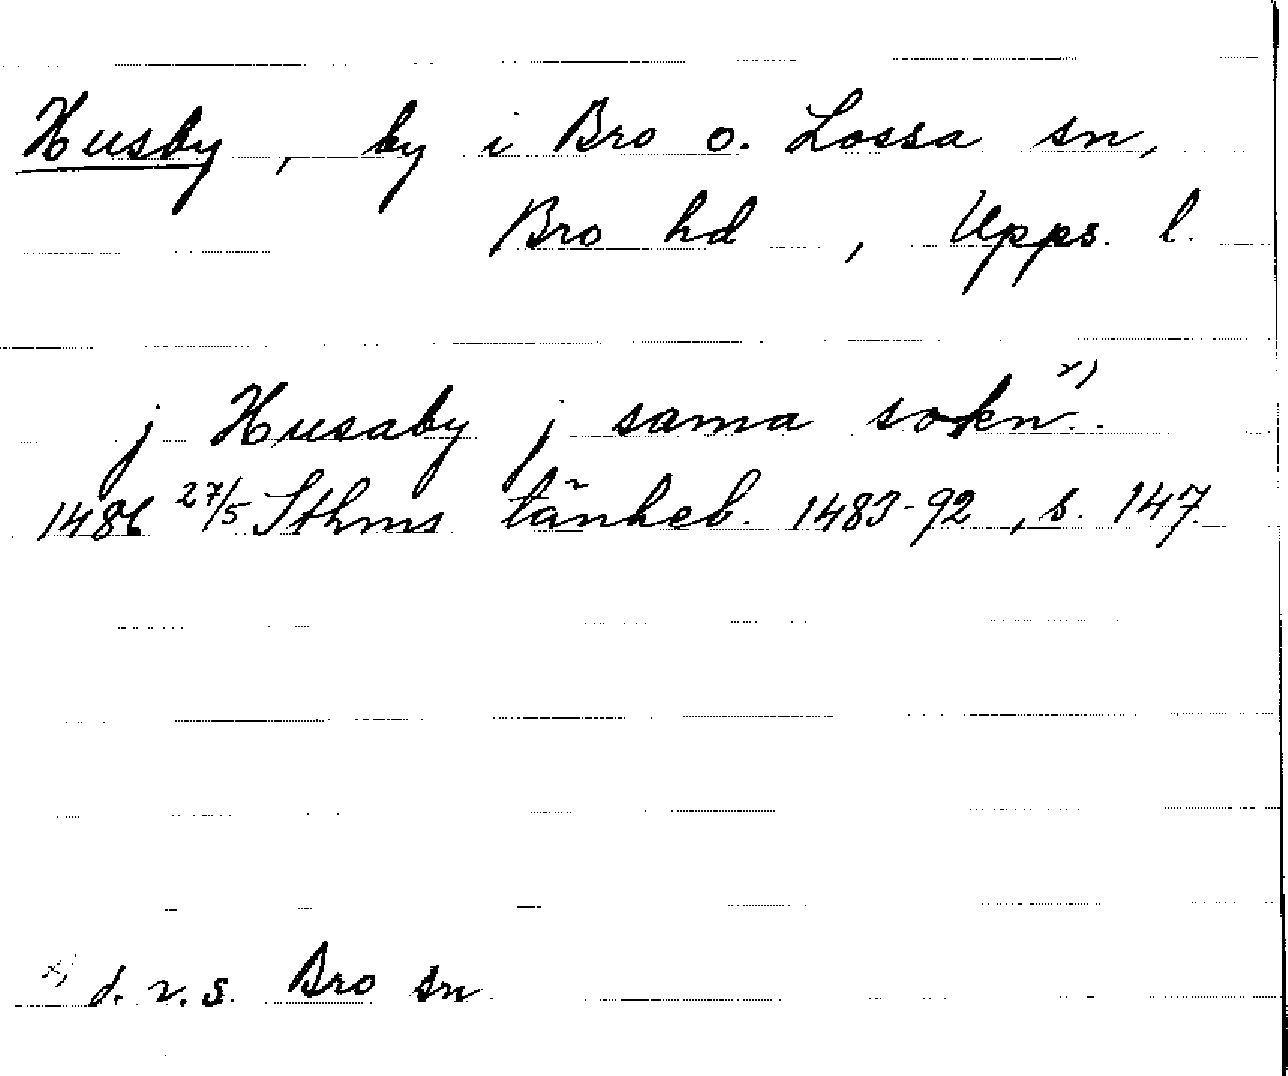 Husby, by i Bro o. Lossa sn,
Bro hd, Upps. l.
j Husaby j sama sokn x)
1486 27/5 Sthms tänkeb. 1483-92, s. 147.
x) d. v. s. Bro sn